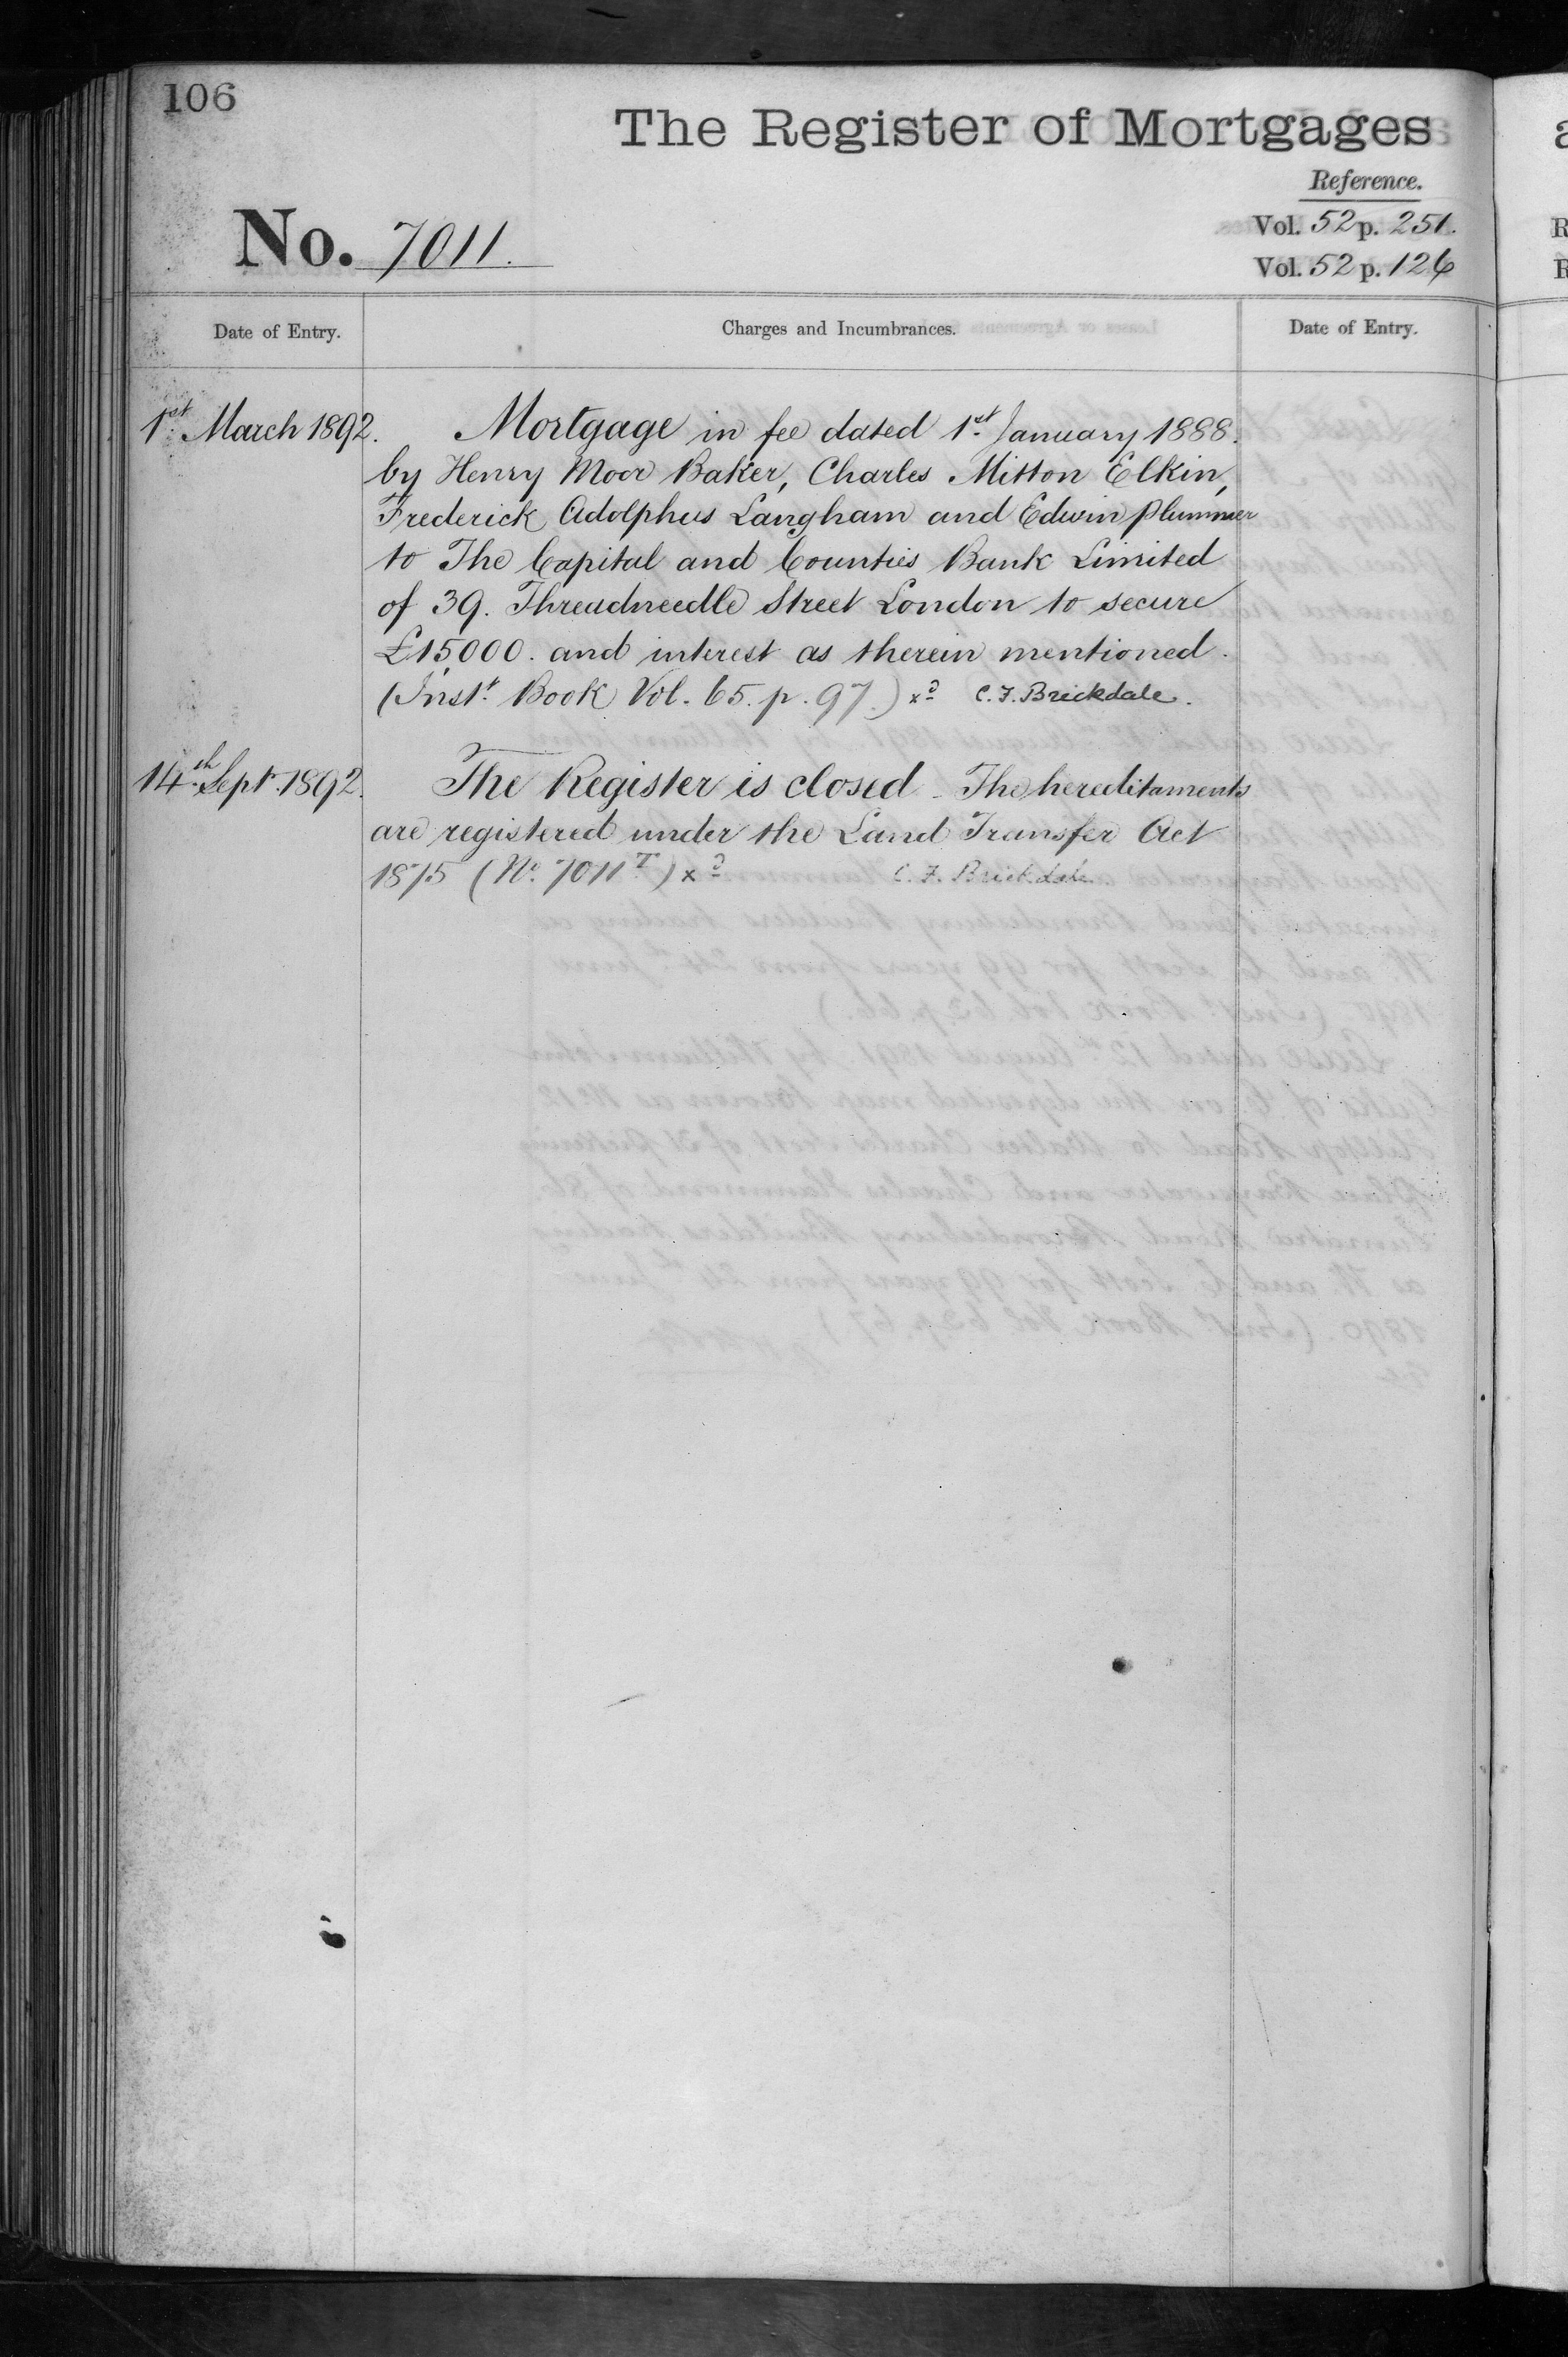 106
The Register of Mortgages
Reference.
No. 7011.
Vol. 52 p. 251.
Vol. 52 p. 126
Date of Entry.
Charges and Incumbrances.
Date of Entry.
1st March 1892.
Mortgage in fee dated 1st January 1888.
by Henry Moor Baker, Charles Mitton Elkin,
Frederick Adolphus Langham and Edwin Plummer
to The Capital and Counties Bank Limited
of 39. Threadneedle Street London to secure
£15,000. and interest as therein mentioned.
(Inst. Book Vol. 65. p. 97.) xd C. F. Brickdale.
14th Sept. 1892.
The Register is closed. The hereditaments
are registered under the Land Transfer Act
1875 (No. 7011T) xd C. F. Brickdale